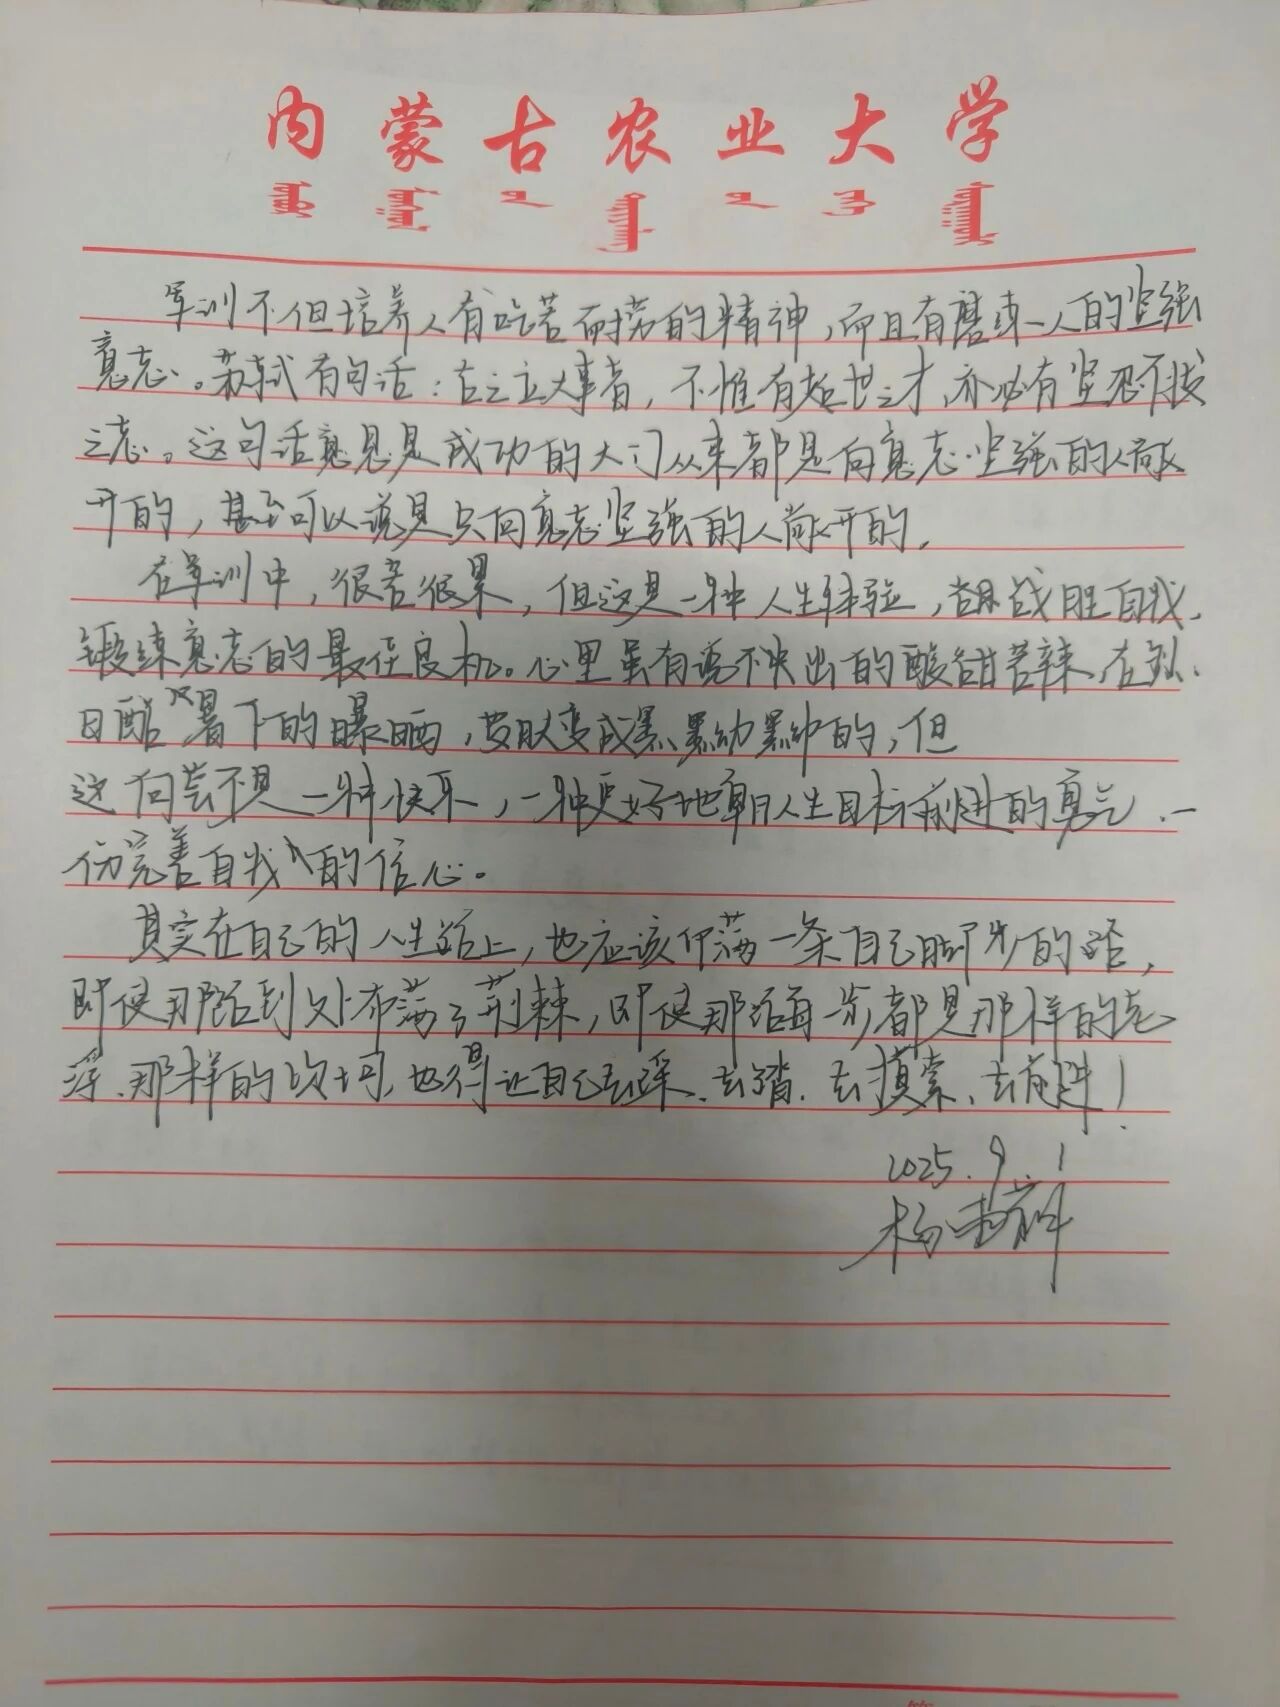 内蒙古农业大学
军训不但培养人有吃苦而捞的精神，而且有磨练人的坚强
意志。苏轼有句话：古之立大事者，不惟有超世之才，亦必有坚忍不拔
之志。这句话意思是成功的大门从来都是向意志坚强的人敞
开的，甚至可以说是只向意志坚强的人敞开的。
在军训中，很苦很累，但这是一种人生体验，战胜自我，
锻练意志的最佳良机。心里虽有说不出的酸甜苦辣，在烈
日酷暑下的曝晒，皮肤变成黑黝黝的，但
这何尝不是一种快乐，一种更好地朝人生目标前进的勇气，一
份完善自我的信心。
其实在自己的人生路上，也应该印满一条自己脚步的路，
即使那路到处布满了荆棘，即使那路每一步都是那样的
那样的坎坷，也得让自己去踩、去踏、去摸索、去前进！
2025.9.1
杨